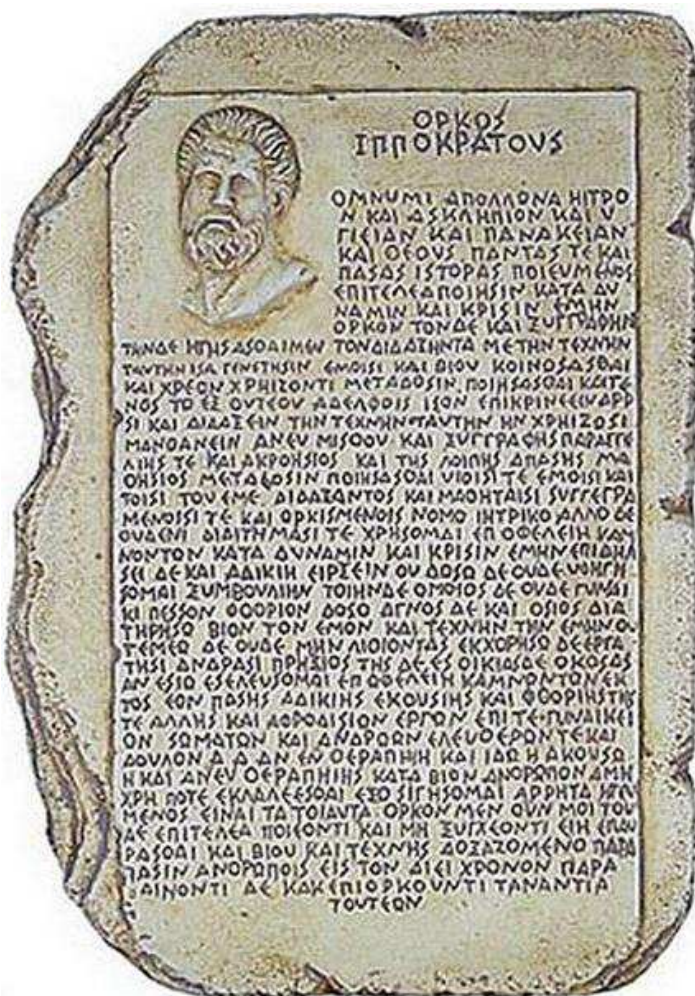 ΟΡΚΟS
ΙΠΠΟΚΡΑΤΟUS
ΟΜΝUΜΙ ΑΠΟΛΛΩΝΑ ΗΙΤΡΟ
Ν ΚΑΙ ΑSΚΛΗΠΙΟΝ ΚΑΙ U
ΓΙΕΙΑΝ ΚΑΙ ΠΑΝΑΚΕΙΑΝ
ΚΑΙ ΘΕΟUS ΠΑΝΤΑS ΤΕ ΚΑΙ
ΠΑSΑS ΙSΤΟΡΑS ΠΟΙΕUΜΕΝΟS
ΕΠΙΤΕΛΕΑ ΠΟΙΗSΙΝ ΚΑΤΑ ΔU
ΝΑΜΙΝ ΚΑΙ ΚΡΙSΙΝ ΕΜΗΝ
ΟΡΚΟΝ ΤΟΝΔΕ ΚΑΙ ΞUΓΓΡΑΦΗΝ
ΤΗΝΔΕ ΗΓΗSΑSΘΑΙ ΜΕΝ ΤΟΝ ΔΙΔΑΞΗΝΤΑ ΜΕ ΤΗΝ ΤΕΧΝΗΝ
ΤΑUΤΗΝ ΙSΑ ΓΕΝΕΤΗSΙΝ ΕΜΟΙSΙ ΚΑΙ ΒΙΟU ΚΟΙΝΟSΑSΘΑΙ
ΚΑΙ ΧΡΕΟΝ ΧΡΗΙΖΟΝΤΙ ΜΕΤΑΔΟSΙΝ ΠΟΙΗSΑSΘΑΙ ΚΑΙ ΓΕ
ΝΟS ΤΟ ΕΞ ΟUΤΕΟU ΑΔΕΛΦΟΙS ΙSΟΝ ΕΠΙΚΡΙΝΕΕΙΝ ΑΡΡ
SΙ ΚΑΙ ΔΙΔΑΞΕΙΝ ΤΗΝ ΤΕΧΝΗΝ ΤΑUΤΗΝ ΗΝ ΧΡΗΙΖΩSΙ
ΜΑΝΘΑΝΕΙΝ ΑΝΕU ΜΙSΘΟU ΚΑΙ ΞUΓΓΡΑΦΗS ΠΑΡΑΓΓΕ
ΛΙΗS ΤΕ ΚΑΙ ΑΚΡΟΗSΙΟS ΚΑΙ ΤΗS ΛΟΙΠΗS ΑΠΑSΗS ΜΑ
ΘΗSΙΟS ΜΕΤΑΔΟSΙΝ ΠΟΙΗSΑSΘΑΙ UΙΟΙSΙ ΤΕ ΕΜΟΙSΙ ΚΑΙ
ΤΟΙSΙ ΤΟU ΕΜΕ ΔΙΔΑΞΑΝΤΟS ΚΑΙ ΜΑΘΗΤΑΙSΙ SUΓΓΕΓΡΑ
ΜΕΝΟΙSΙ ΤΕ ΚΑΙ ΟΡΚΙSΜΕΝΟΙS ΝΟΜΟ ΙΗΤΡΙΚΟ ΑΛΛΟ ΔΕ
ΟUΔΕΝΙ ΔΙΑΙΤΗΜΑSΙ ΤΕ ΧΡΗSΟΜΑΙ ΕΠ ΟΦΕΛΕΙΗ ΚΑΜ
ΝΟΝΤΩΝ ΚΑΤΑ ΔUΝΑΜΙΝ ΚΑΙ ΚΡΙSΙΝ ΕΜΗΝ ΕΠΙ ΔΗΛ
SΕΙ ΔΕ ΚΑΙ ΑΔΙΚΙΗ ΕΙΡΞΕΙΝ ΟU ΔΩSΩ ΔΕ ΟUΔΕ UΦΗΓΗ
SΟΜΑΙ ΞUΜΒΟUΛΙΗΝ ΤΟΙΗΝΔΕ ΟΜΟΙΟS ΔΕ ΟUΔΕ ΓUΝΑΙ
ΚΙ ΠΕSSΟΝ ΦΘΟΡΙΟΝ ΔΟSΟ ΑΓΝΟS ΔΕ ΚΑΙ ΟSΙΟS ΔΙΑ
ΤΗΡΗSΩ ΒΙΟΝ ΤΟΝ ΕΜΟΝ ΚΑΙ ΤΕΧΝΗΝ ΤΗΝ ΕΜΗΝ Ο
ΤΕΜΕΩ ΔΕ ΟUΔΕ ΜΗΝ ΛΙΘΙΟΝΤΑS ΕΚΧΟΡΗSΩ ΔΕ ΕΡΓΑ
ΤΗSΙ ΑΝΔΡΑSΙ ΠΡΗΞΙΟS ΤΗSΔΕ ΕS ΟΙΚΙΑS ΔΕ ΟΚΟSΑS
ΑΝ ΕSΙΩ ΕSΕΛΕUSΟΜΑΙ ΕΠ ΩΦΕΛΕΙΗ ΚΑΜΝΟΝΤΩΝ ΕΚ
ΤΟS ΕΟΝ ΠΑSΗS ΑΔΙΚΙΗS ΕΚΟUSΙΗS ΚΑΙ ΦΘΟΡΙΗS ΤΗS
ΤΕ ΑΛΛΗS ΚΑΙ ΑΦΡΟΔΙSΙΟΝ ΕΡΓΩΝ ΕΠΙ ΤΕ ΓUΝΑΙΚΕΙ
ΟΝ SΩΜΑΤΩΝ ΚΑΙ ΑΝΔΡΩΩΝ ΕΛΕUΘΕΡΩΝ ΤΕ ΚΑΙ
ΔΟUΛΟΝ Α Δ ΑΝ ΕΝ ΘΕΡΑΠΗΙΗ ΚΑΙ ΙΔΩ Η ΑΚΟUSΩ
Η ΚΑΙ ΑΝΕU ΘΕΡΑΠΗΙΗS ΚΑΤΑ ΒΙΟΝ ΑΝΘΡΩΠΟΝ Α ΜΗ
ΧΡΗ ΠΟΤΕ ΕΚΛΑΛΕΕSΘΑΙ ΕΞΟ SΙΓΗSΟΜΑΙ ΑΡΡΗΤΑ ΗΓΕU
ΜΕΝΟS ΕΙΝΑΙ ΤΑ ΤΟΙΑUΤΑ ΟΡΚΟΝ ΜΕΝ ΟUΝ ΜΟΙ ΤΟΝ
ΔΕ ΕΠΙΤΕΛΕΑ ΠΟΙΕΟΝΤΙ ΚΑΙ ΜΗ ΞUΓΧΕΟΝΤΙ ΕΙΗ ΕΠΑU
ΡΑSΘΑΙ ΚΑΙ ΒΙΟU ΚΑΙ ΤΕΧΝΗS ΔΟΞΑΖΟΜΕΝΟ ΠΑΡΑ
ΠΑSΙΝ ΑΝΘΡΩΠΟΙS ΕΙS ΤΟΝ ΑΙΕΙ ΧΡΟΝΟΝ ΠΑΡΑ
ΒΑΙΝΟΝΤΙ ΔΕ ΚΑΚ ΕΠΙΟΡΚΟUΝΤΙ ΤΑΝΑΝΤΙΑ
ΤΟUΤΕΩΝ